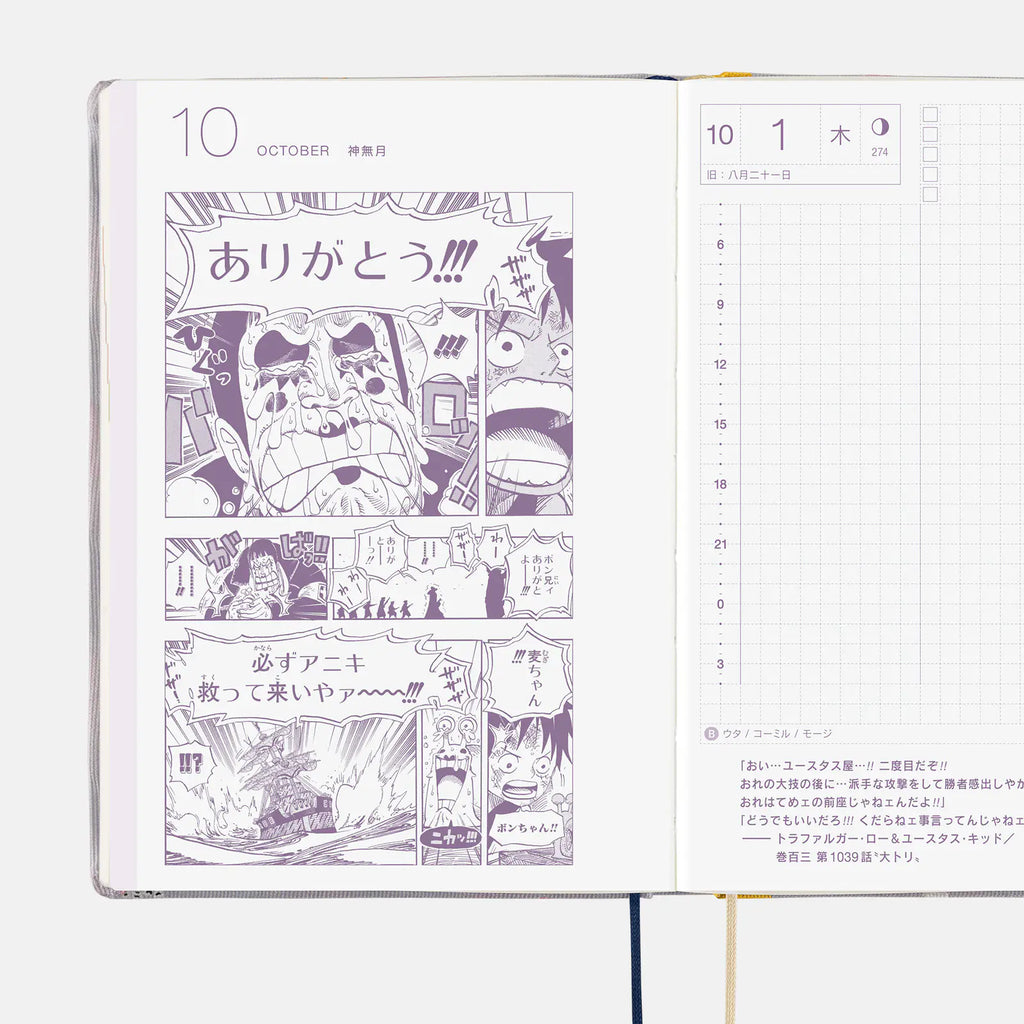 10 OCTOBER 神無月
ありがとう!!!
ザザザ
ひぐっ
!!!
ばっ!!
ありがとーーっ!!
ザザー
わー
わわー
ボン兄ィありがとよー!!!
必ずアニキ
かなら
救って来いやァ〜〜〜!!!
すく
こ
麦ちゃん!!!
むぎ
!!?
ニカッ!!!
ボンちゃん!!
10 1 木
274
旧：八月二十一日
6
9
12
15
18
21
0
3
B ウタ / コーミル / モージ
「おい…ユースタス屋…!! 二度目だぞ!!
おれの大技の後に…派手な攻撃をして勝者感出しやが
おれはてめェの前座じゃねェんだよ!!」
「どうでもいいだろ!!! くだらねェ事言ってんじゃねェ
── トラファルガー･ロー＆ユースタス･キッド／
巻百三 第1039話〝大トリ〟